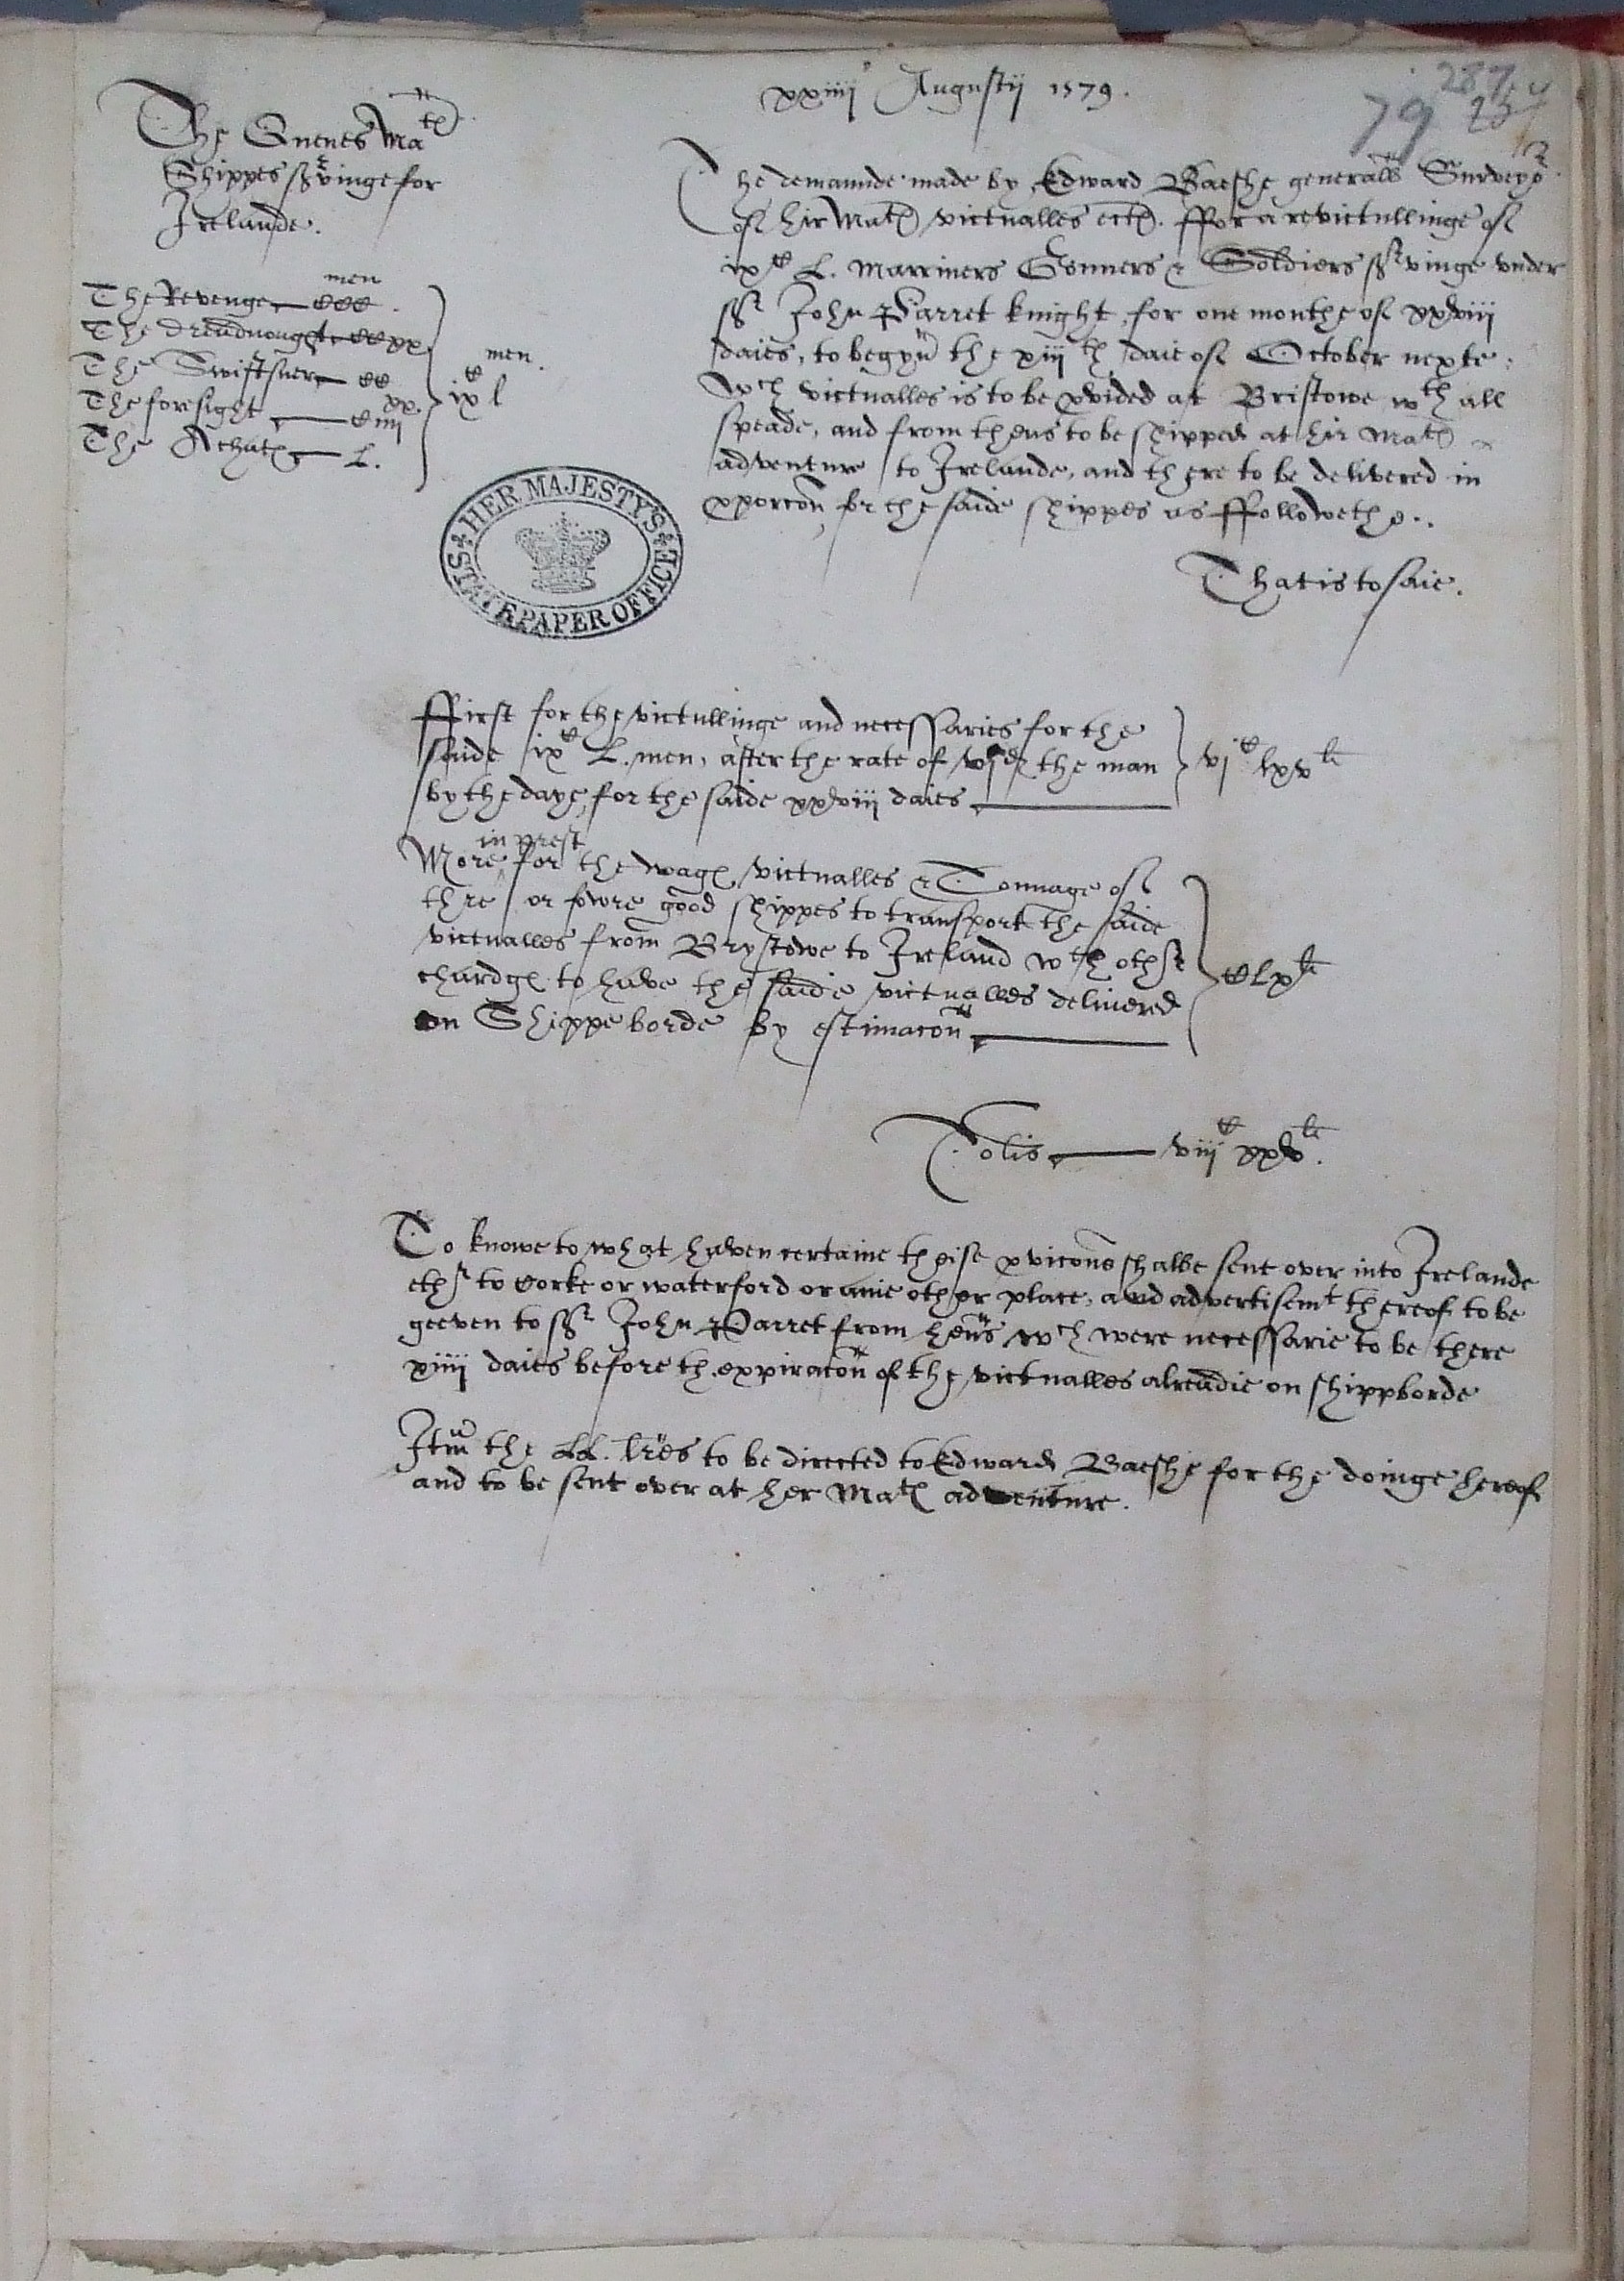 xxiiij° Augustij 1579.
287
79 257
The Quenes Ma^ts
Shippes s^rvinge for
Irelande.
men
The Revenge — CCC.
The dreadnought — CCxx
The Swiftsuer — CC
The foresight — C iiij^xx
The Achates — L.
men.
ix^C l
HER MAJESTY'S STATE PAPER OFFICE
The demaunde made by Edward Baeshe generall Surveyo^r
of hir Ma^tes victualles etc. ffor a revictullinge of
ix^C L. Marriners Gonners & Soldiers s^rvinge vnder
S^r John Parret knight, for one monthe of xxviij
daies, to begyn the xiij^th daie of October nexte:
W^ch victualles is to be p^rvided at Bristowe w^th all
speade, and from thens to be shipped at hir Ma^tes
adventure to Irelande, and there to be delivered in
p^rporcon for the saide shippes as ffollowethe.
That is to saie.
ffirst for the victullinge and necessaries for the
saide ix^C L. men, after the rate of vj^d the man
by the daye, for the saide xxviij daies —
vj^C lxv^li
in prest
More for the wages victualles & Tonnage of
thre or fowre good shippes to transport the saide
victualles from Brystowe to Ireland w^th oth^r
chardges to have the saide victualles delivered
on Shippeborde by estimacon —
CLx^li
Tolis — viij^C xxv^li.
To knowe to what haven certaine theise p^rvicons shalbe sent over into Irelande
eth^r to Corke or waterford or anie other place, and advertisem^t thereof to be
geeven to S^r John Parret from hens w^ch were necessarie to be there
xiiij daies before th.expiracon of the victualles alreadie on shippborde
Itm the LL. lres to be directed to Edward Baeshe for the doinge hereof
and to be sent over at her Ma^tes adventure.